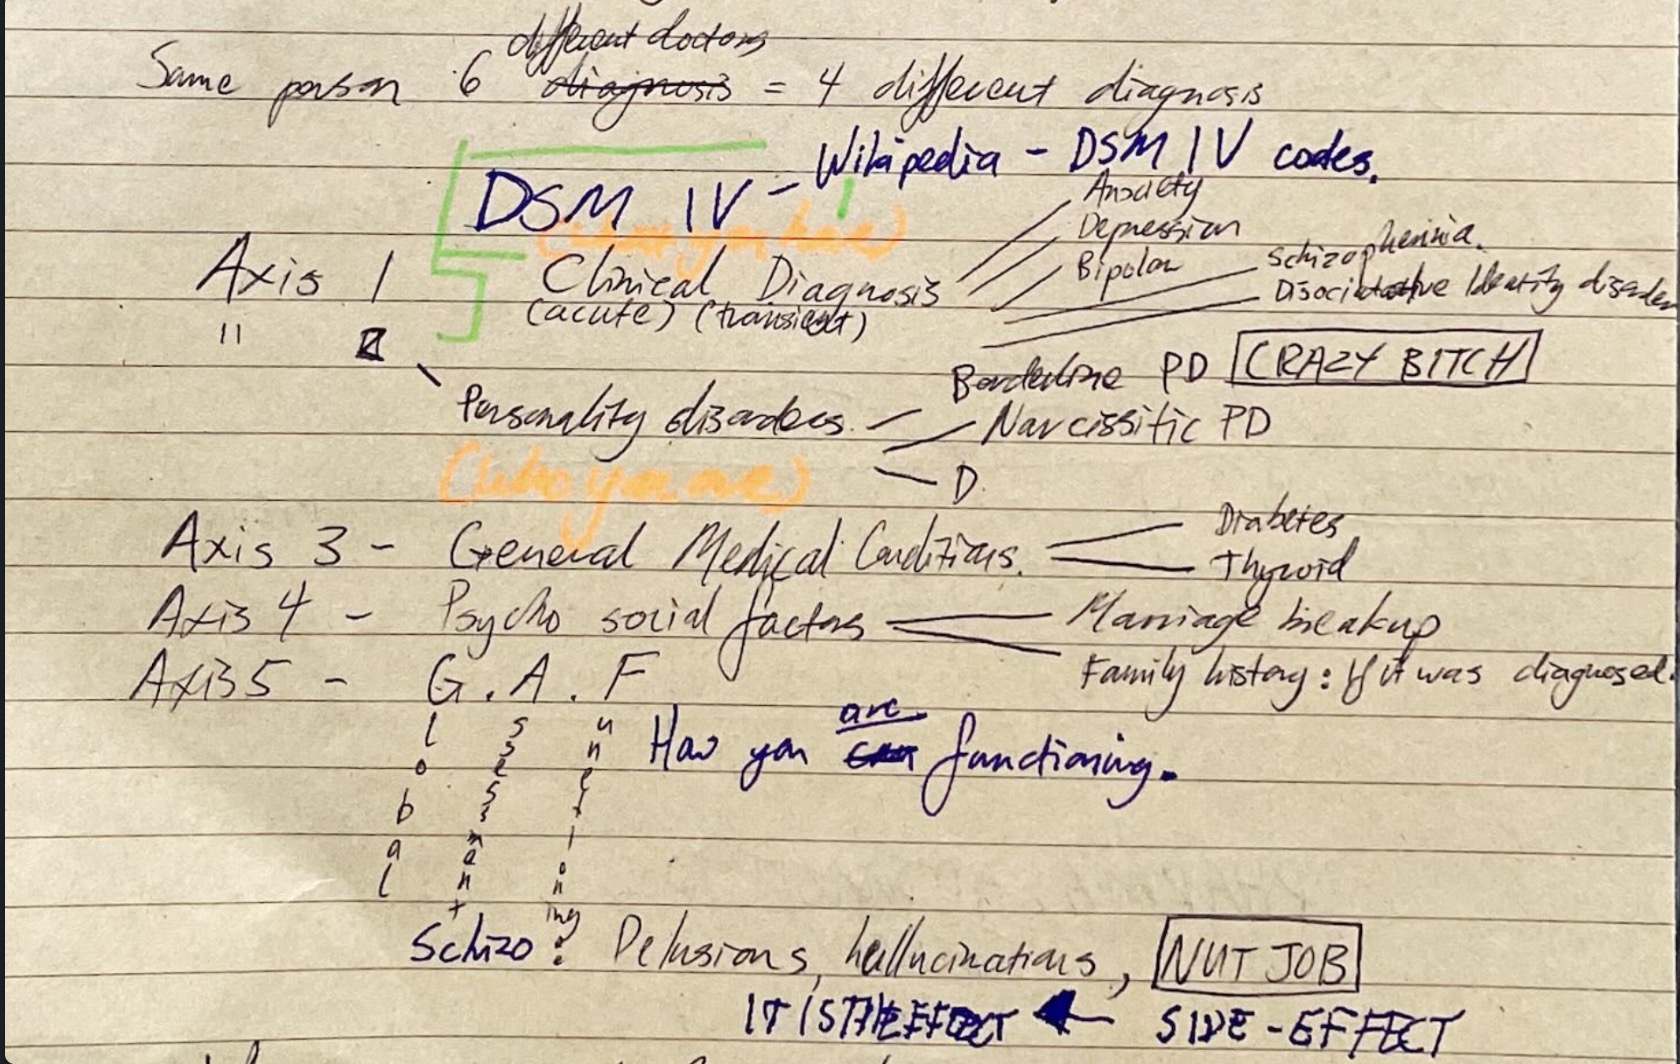 different doctors
Same person 6 diagnosis = 4 different diagnosis
DSM IV - Wikipedia - DSM IV codes.
(what you have)
Axis 1 Clinical Diagnosis
(acute) (transient)
Anxiety
Depression
Bipolar
Schizophrenia.
Disociative Identity disorder
" 2
Personality disorders
Borderline PD CRAZY BITCH
Narcissitic PD
D
(who you are)
Axis 3 - General Medical Conditions.
Diabetes
Thyroid
Axis 4 - Psycho social factors
Marriage breakup
Family history: If it was diagnosed.
Axis 5 - G.A.F
Global
Assessment
Functioning
are
How you can functioning.
Schizo: Delusions, hallucinations, NUT JOB
IT IS THE EFFECT ← SIDE-EFFECT